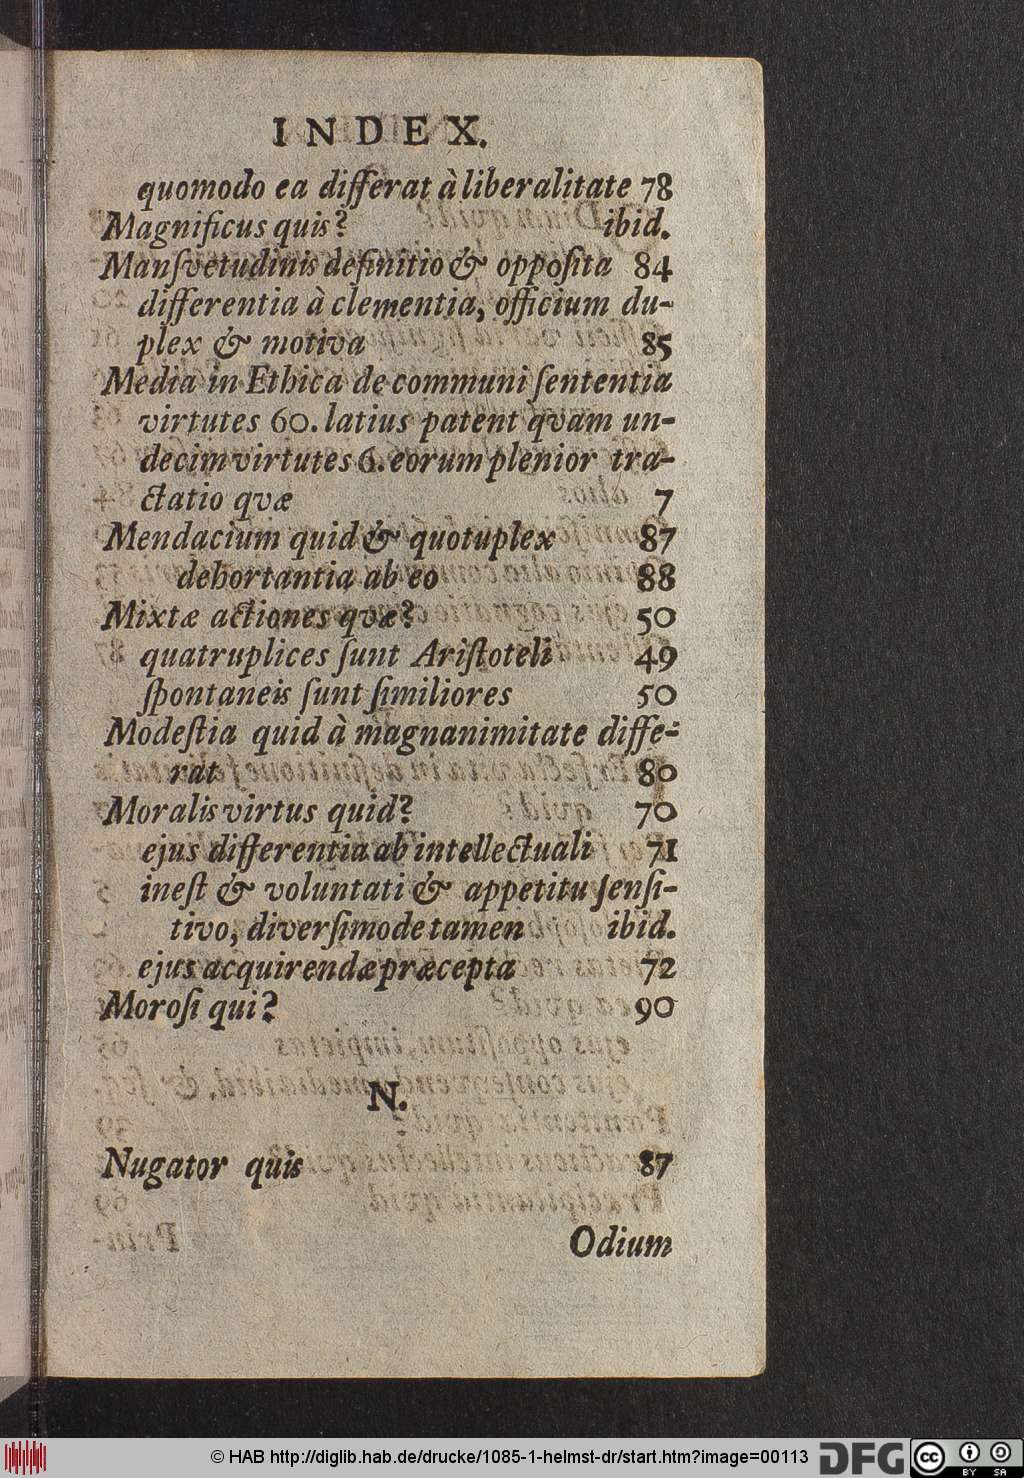 INDEX.
quomodo ea differat à liberalitate 78
Magnificus quis? ibid.
Manſvetudinis definitio & oppoſita 84
differentia à clementia, officium du-
plex & motiva 85
Media in Ethica de communi ſententia
virtutes 60. latius patent qvam un-
decim virtutes 6. eorum plenior tra-
ctatio qvæ 7
Mendacium quid & quotuplex 87
dehortantia ab eo 88
Mixtæ actiones qvæ? 50
quatruplices ſunt Ariſtoteli 49
ſpontaneis ſunt ſimiliores 50
Modeſtia quid à magnanimitate diffe-
rat 80
Moralis virtus quid? 70
ejus differentia ab intellectuali 71
ineſt & voluntati & appetitu ſenſi-
tivo, diverſimode tamen ibid.
ejus acquirendæ præcepta 72
Moroſi qui? 90
N.
Nugator quis 87
Odium
© HAB http://diglib.hab.de/drucke/1085-1-helmst-dr/start.htm?image=00113
DFG
cc
BY SA